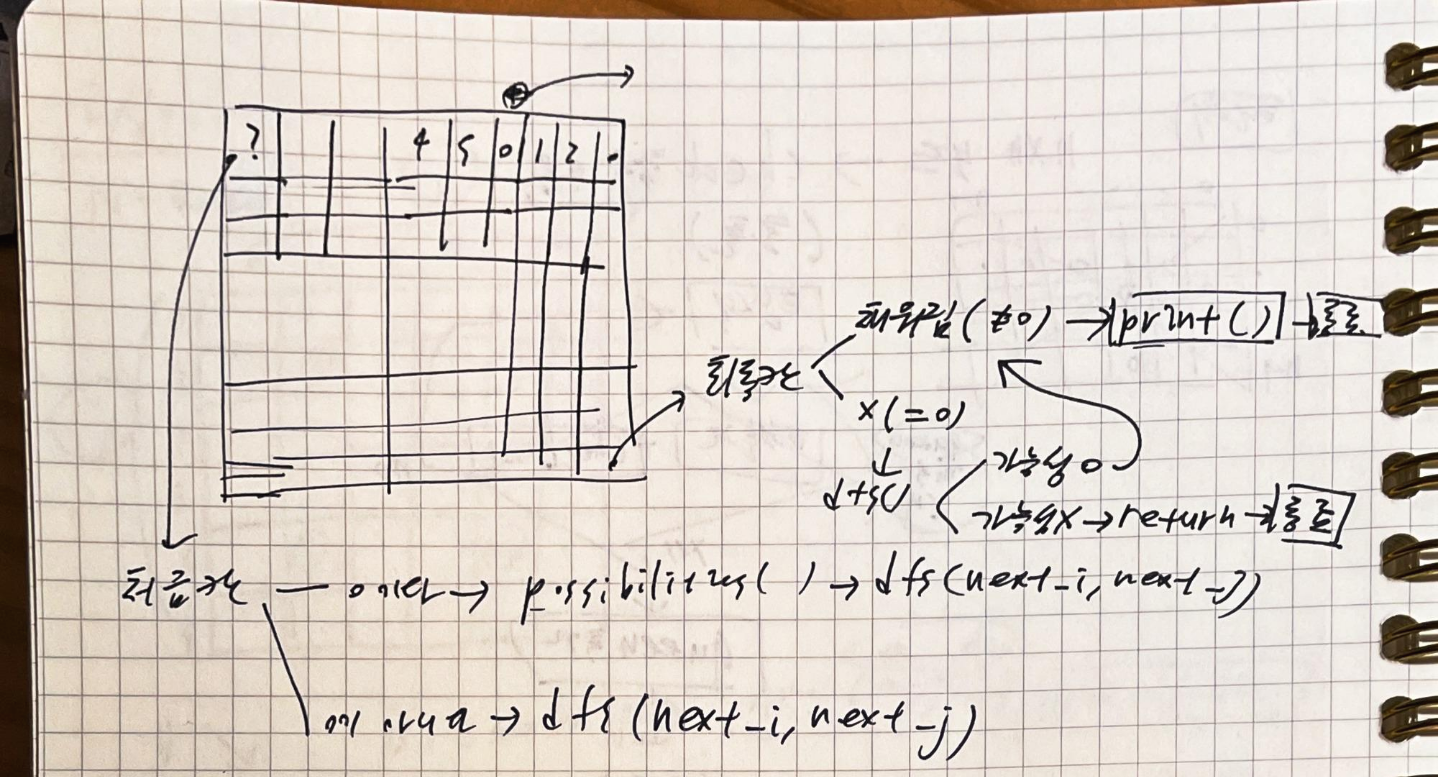 ? 4 5 0 1 2 .
채워짐 (≠0) → print() → 종료
최종칸
X (=0)
↓
dfs() 가능성 O
가능성 X → return → 종료
처음칸 — 0이다 → possibilities( ) → dfs(next_i, next_j)
0이 아니다 → dfs(next_i, next_j)